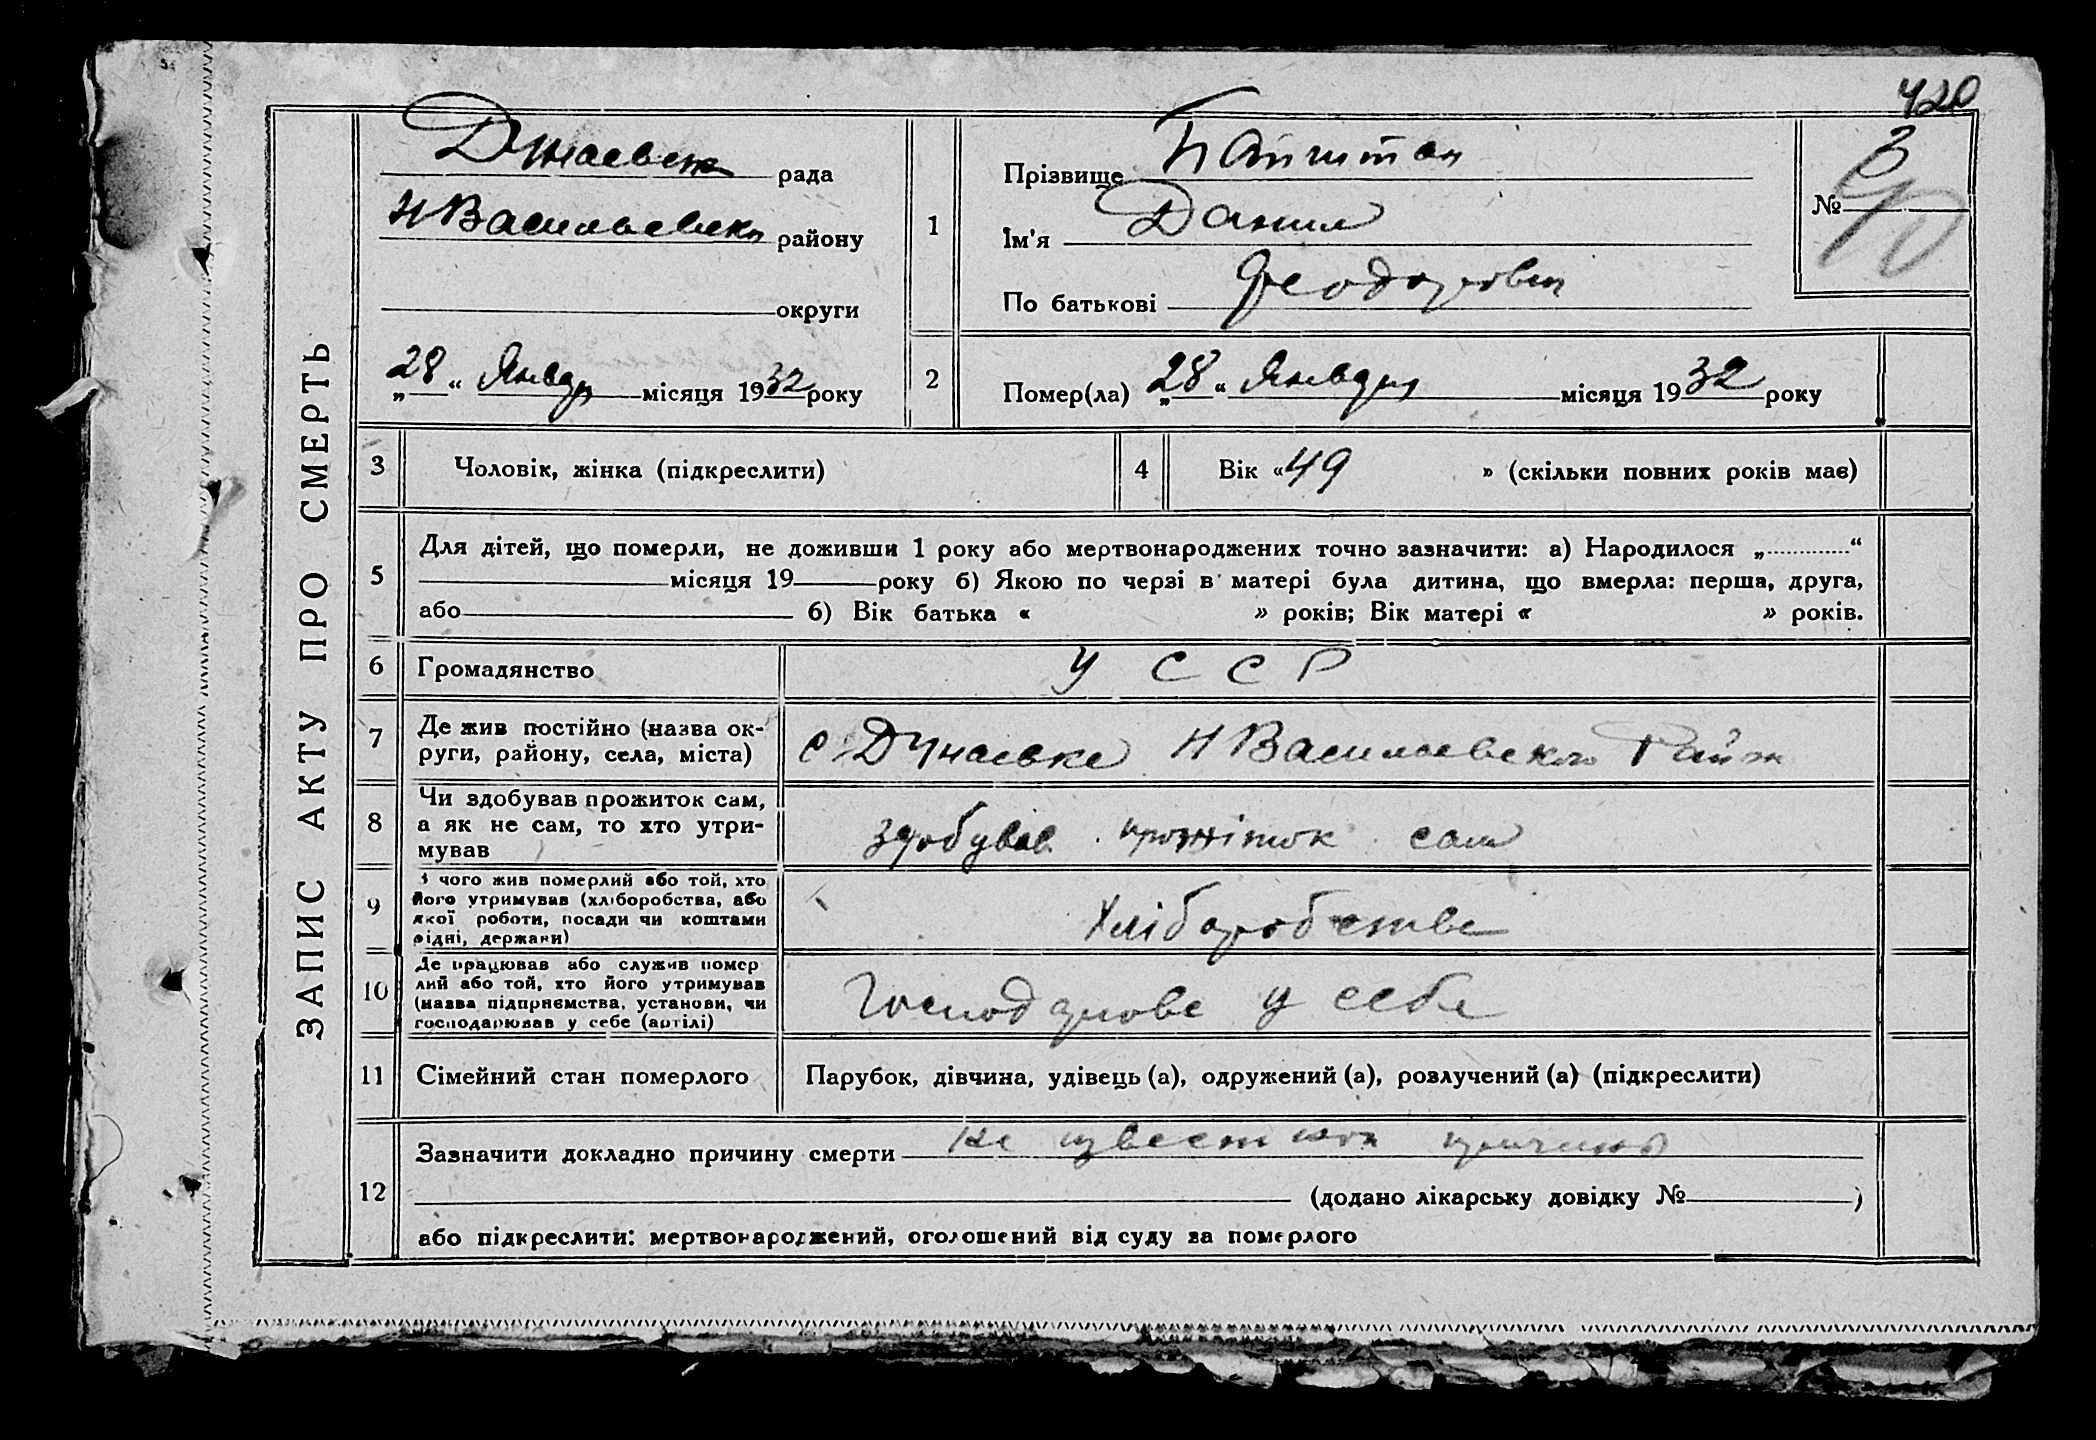 420
Дунаевск рада
Н Васильевско району
округи
28 Января місяця 1932 року
ЗАПИС АКТУ ПРО СМЕРТЬ
1
Прізвище
Ім'я Данил
По батькові Феодорович
№ 3
2
Помер(ла) „28“ Января місяця 1932 року
3
Чоловік, жінка (підкреслити)
4
Вік «49 » (скільки повних років має)
5
Для дітей, що померли, не доживши 1 року або мертвонароджених точно зазначити: а) Народилося „ “
місяця 19 року б) Якою по черзі в матері була дитина, що вмерла: перша, друга,
або б) Вік батька « » років; Вік матері « » років.
6
Громадянство
У С С Р
7
Де жив постійно (назва ок-
руги, району, села, міста)
с Дунаевке Н Васильевского Район
8
Чи здобував прожиток сам,
а як не сам, то хто утри-
мував
здобував прожіток сам
9
З чого жив померлий або той, хто
його утримував (хліборобства, або
якої роботи, посади чи коштами
рідні, держави)
Хліборобство
10
Де працював або служив помер
лий або той, хто його утримував
(назва підприємства, установи, чи
господарював у себе (артілі)
у себе
11
Сімейний стан померлого
Парубок, дівчина, удівець (а), одружений (а), розлучений (а) (підкреслити)
12
Зазначити докладно причину смерти не известной причины
(додано лікарську довідку № )
або підкреслити: мертвонароджений, оголошений від суду за померлого